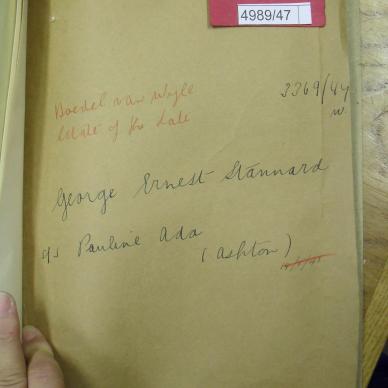 4989/47
3369/47
Boedel van Wyle
Estate of the Late
George Ernest Stannard
s/s Pauline Ada
(Ashton)